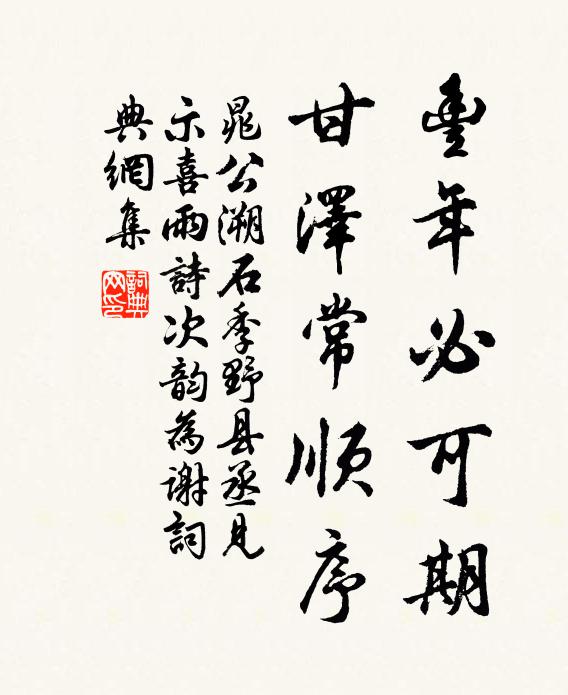 豐年必可期
甘澤常順序
晁公溯石季野县丞見
示喜雨詩次韵為謝詞
典網集
詞典网印